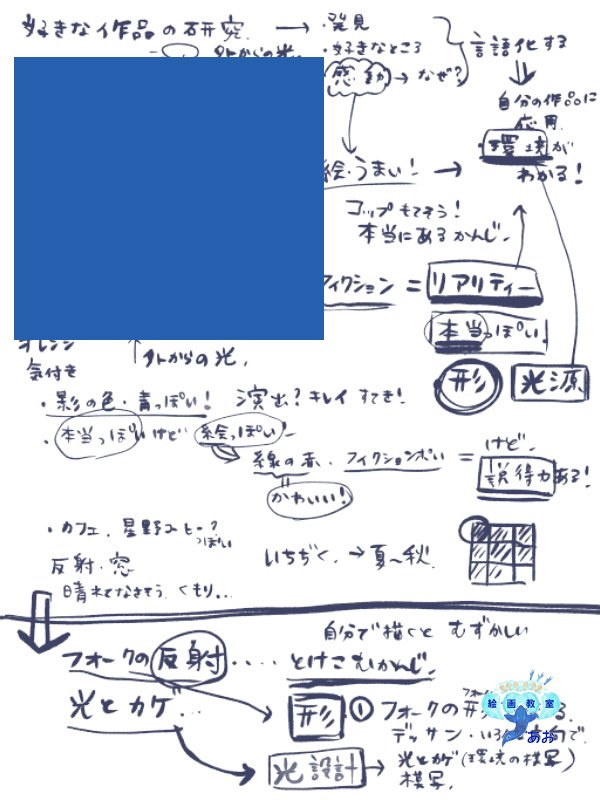 好きな作品の研究 → ・発見
・好きなところ
言語化する
外からの光
感動 → なぜ?
自分の作品に
応用
絵・うまい! →
・環境が
わかる!
コップもてそう!
本当にあるかんじ。
フィクション = リアリティー
本当っぽい
オレンジ
気付き
外からの光。
形
光源
・影の色・青っぽい! 演出? キレイ すてき!
・本当っぽいけど 絵っぽい!
線の赤、フィクションぽい = けど、
説得力ある!
かわいい!
・カフェ、星野コーヒー?
っぽい
反射・窓
晴れてなさそう、くもり...
いちぢく、→ 夏〜秋
自分で描くと むずかしい
フォークの反射・・・・とけこむかんじ。
光とカゲ...
形 ① フォークの形
デッサン・いろ
光設計 → 光とカゲ(環境の模写)
模写。
絵画教室
あお